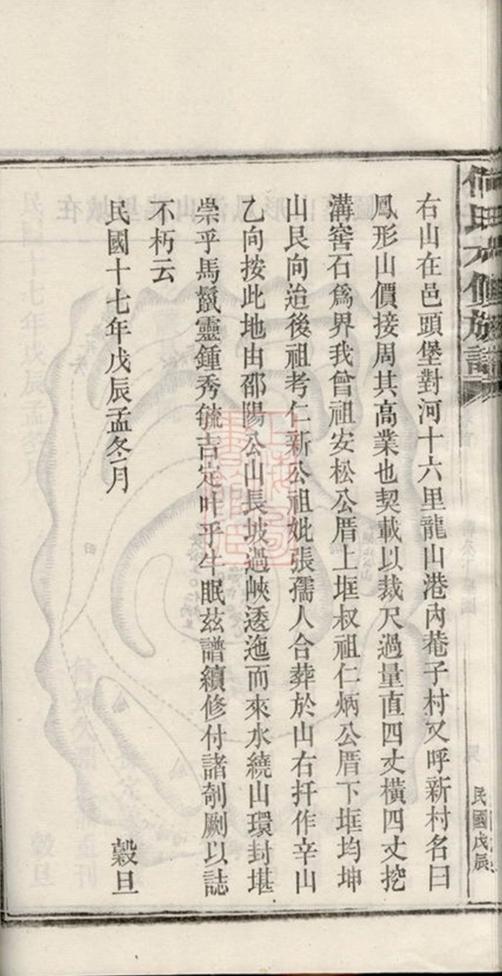 何氏六修族譜
民國戊辰
右山在邑頭堡對河十六里龍山港內菴子村又呼新村名曰
鳳形山價接周其高業也契載以裁尺過量直四丈橫四丈挖
溝窖石爲界我曾祖安松公厝上堆叔祖仁炳公厝下堆均坤
山艮向迨後祖考仁新公祖妣張孺人合葬於山右扦作辛山
乙向按此地由邵陽公山長坡過峽透迤而來水繞山環封堪
崇乎馬鬣靈鍾秀毓吉定叶乎牛眠茲譜續修付諸剞劂以誌
不朽云
民國十七年戊辰孟冬月
穀旦